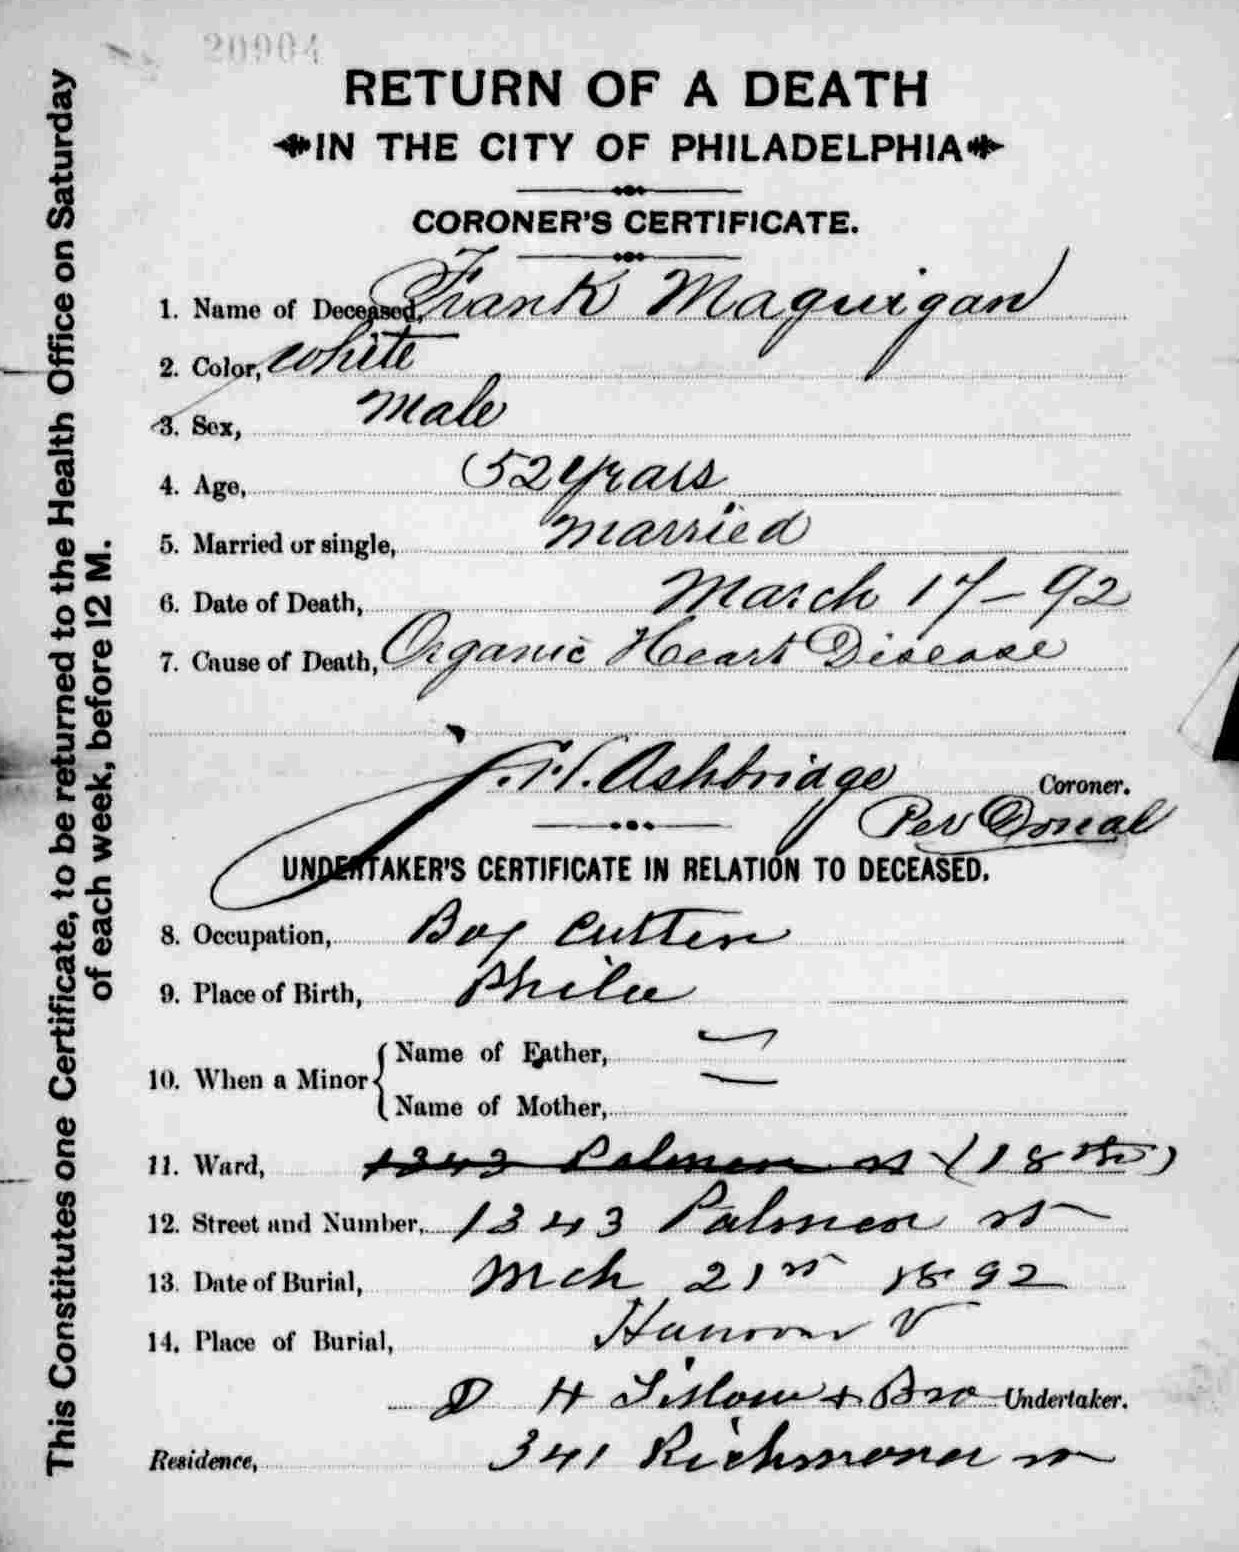 20904
RETURN OF A DEATH
IN THE CITY OF PHILADELPHIA
CORONER'S CERTIFICATE.
1. Name of Deceased, Frank Maguigan
2. Color, White
3. Sex, Male
4. Age, 52 years
5. Married or single, Married
6. Date of Death, March 17 - 92
7. Cause of Death, Organic Heart Disease
Ashbridge Coroner.
Per
UNDERTAKER'S CERTIFICATE IN RELATION TO DECEASED.
8. Occupation, Cutter
9. Place of Birth, Phila
10. When a Minor { Name of Father, —
Name of Mother, —
11. Ward, 1343 Palmer st (18th)
12. Street and Number, 1343 Palmer st
13. Date of Burial, Mch 21st 1892
14. Place of Burial, Hanover V
D H & Bro Undertaker.
Residence, 341 Richmond st
This Constitutes one Certificate, to be returned to the Health Office on Saturday
of each week, before 12 M.